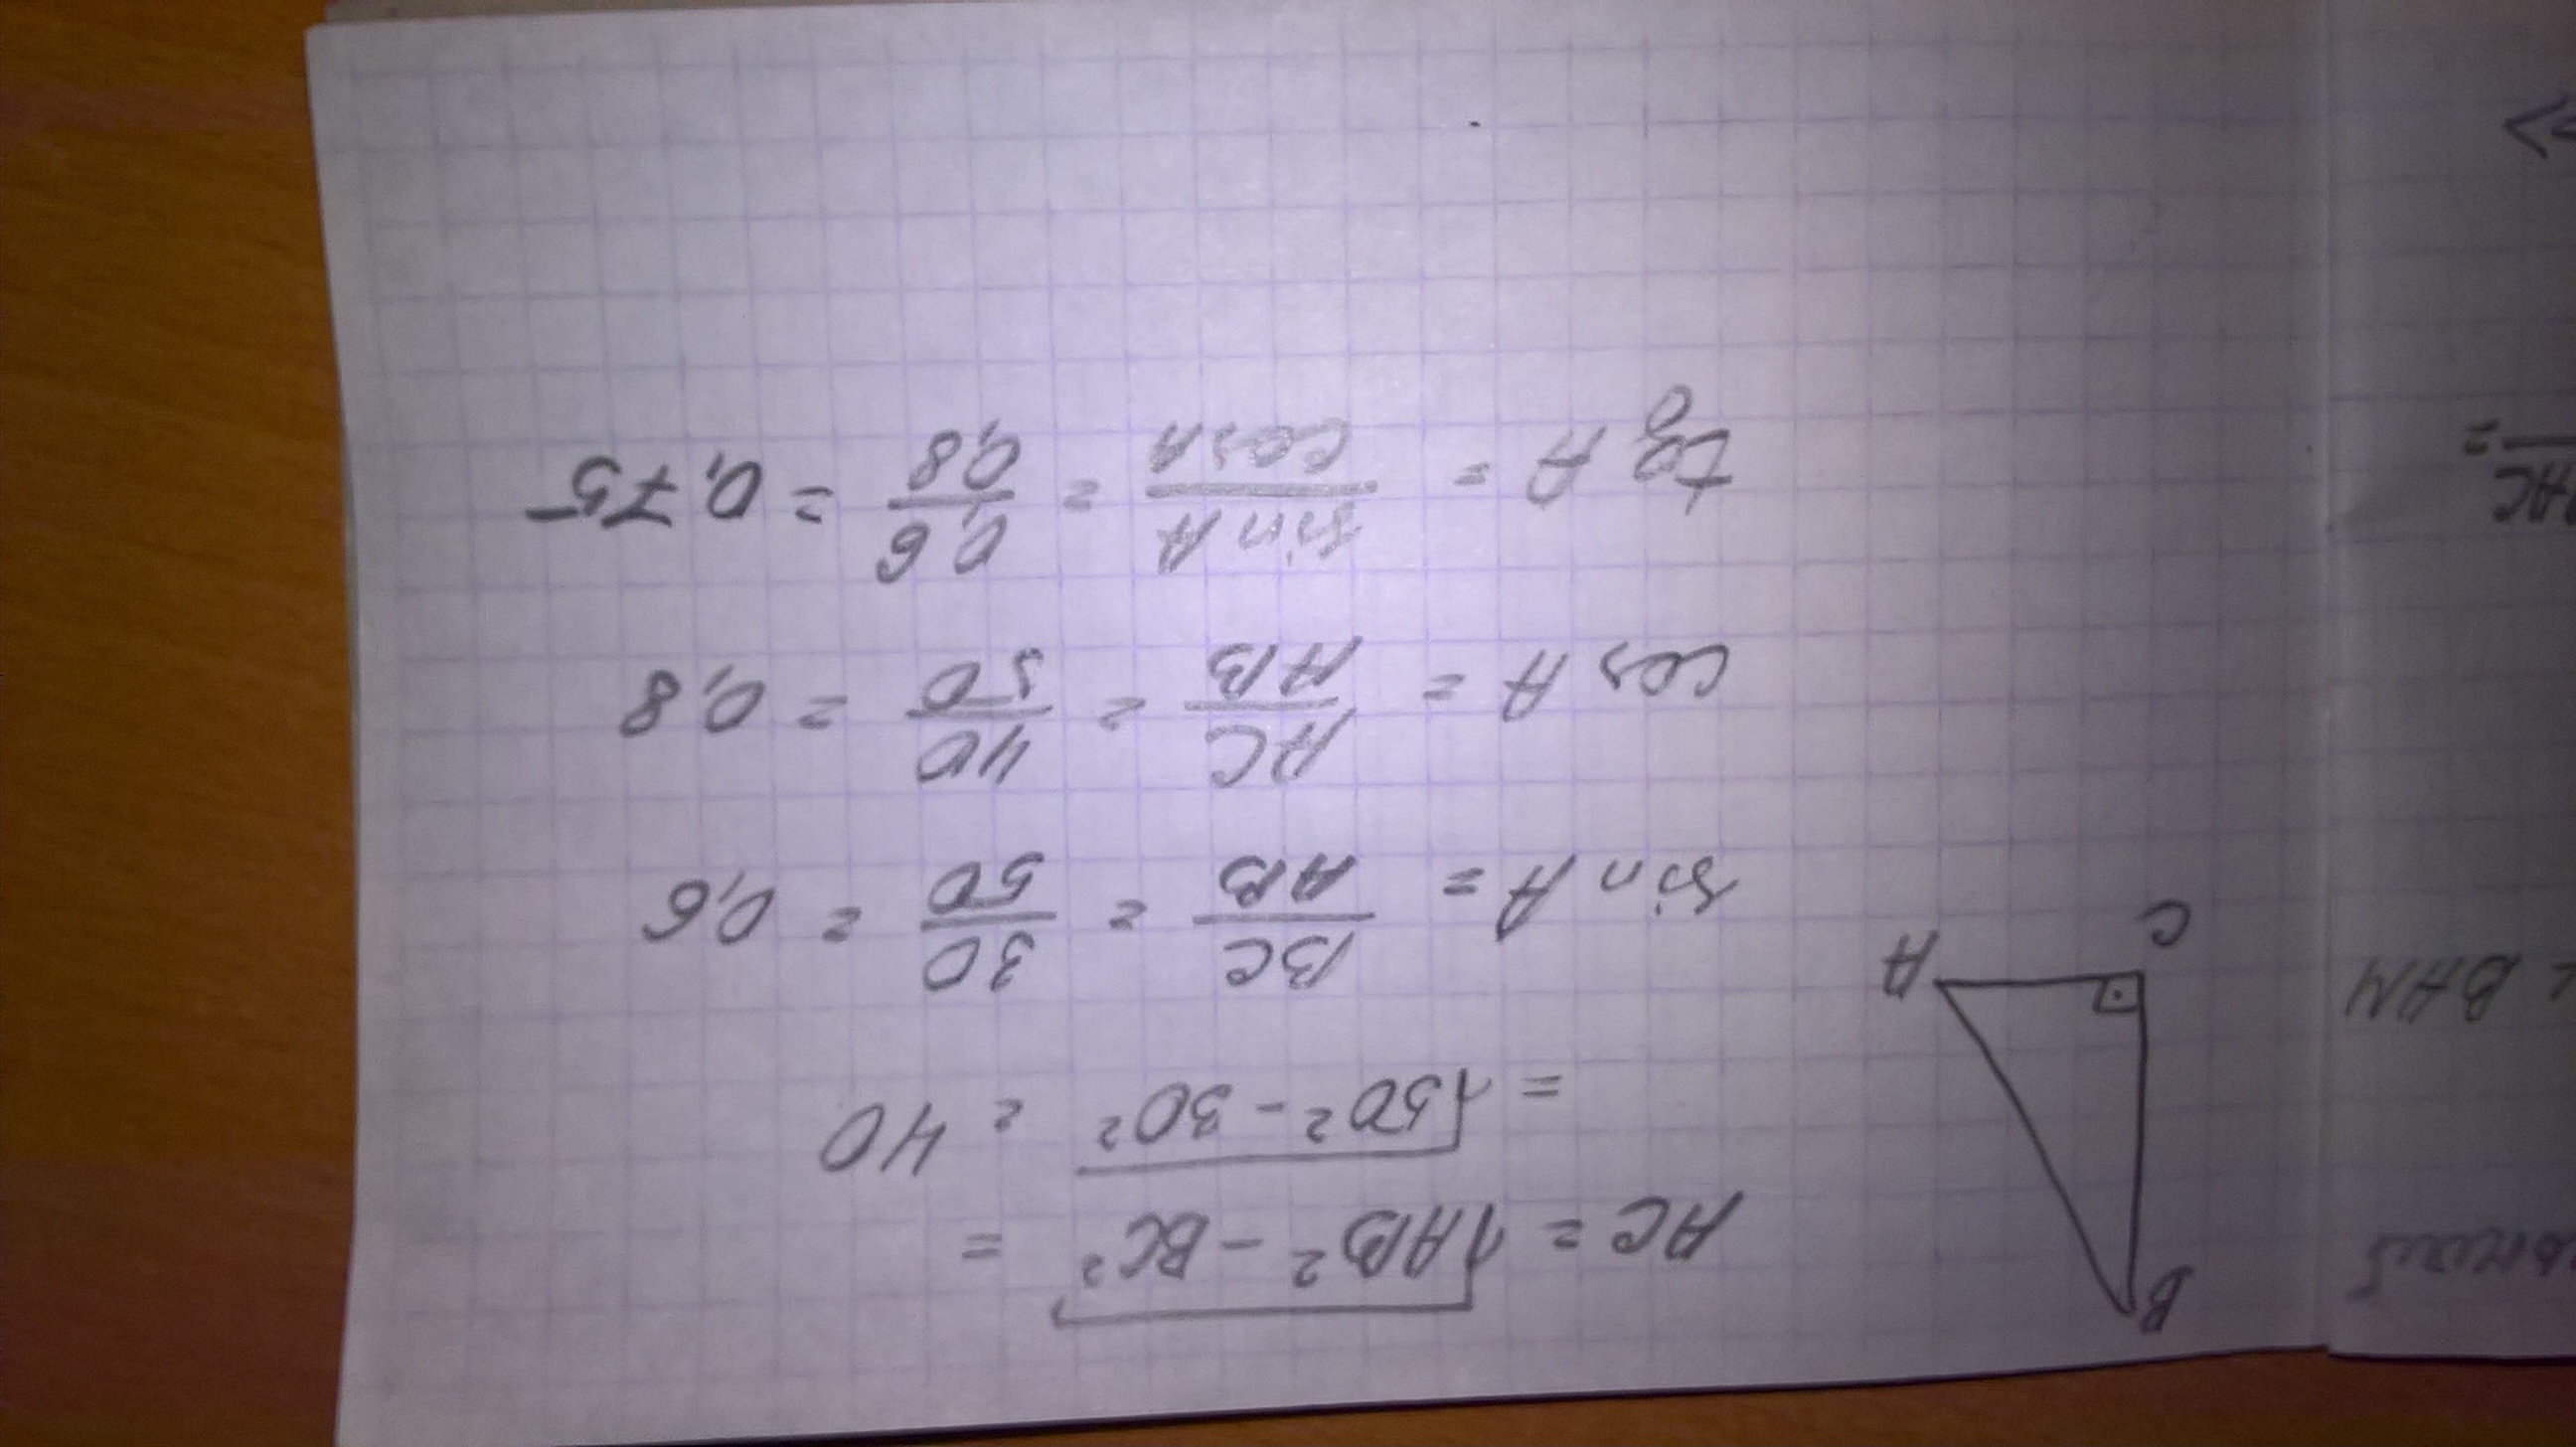 B
C
A
AC = √AB² - BC² =
= √50² - 30² = 40
sin A = BC/AB = 30/50 = 0,6
cos A = AC/AB = 40/50 = 0,8
tg A = sin A/cos A = 0,6/0,8 = 0,75
∠ BAM
AC =